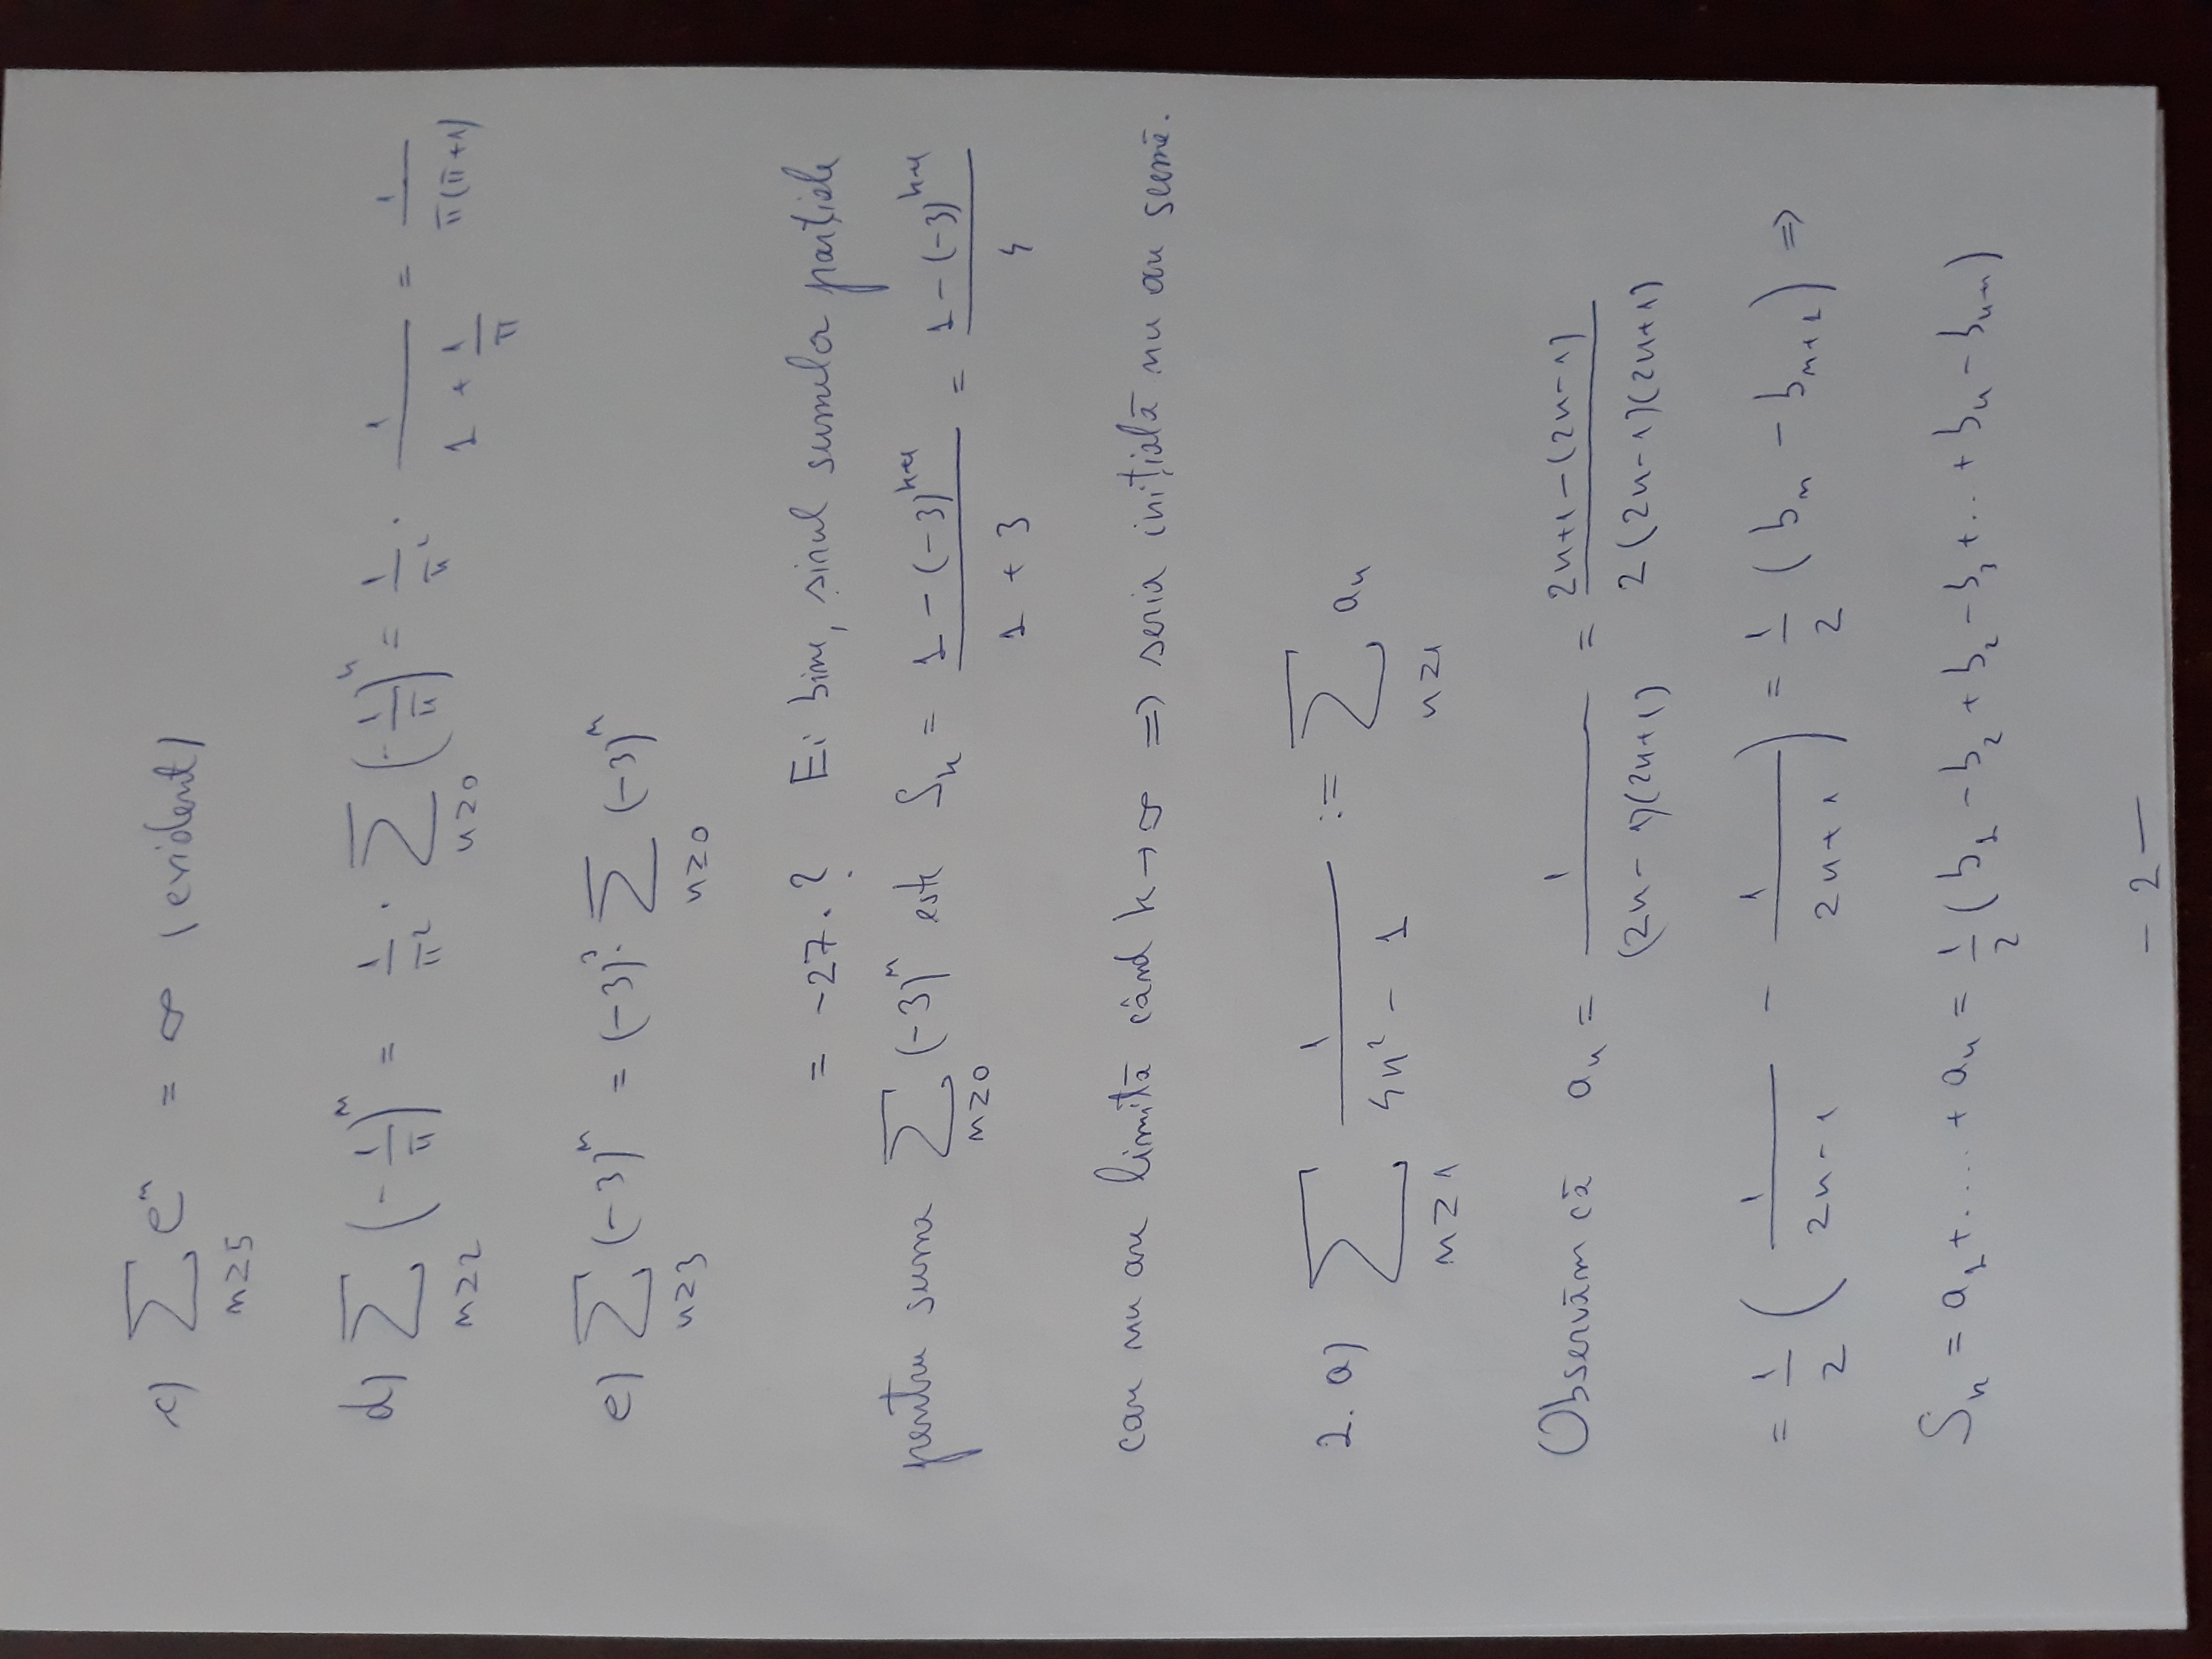 c) ∑_{n≥5} e^n = ∞ (evident)
d) ∑_{n≥2} (-1/π)^n = 1/π² · ∑_{n≥0} (-1/π)^n = 1/π² · 1/(1 + 1/π) = 1/(π(π+1))
e) ∑_{n≥3} (-3)^n = (-3)³ · ∑_{n≥0} (-3)^n
= -27 · ? Ei bine, șirul sumelor parțiale
pentru suma ∑_{n≥0} (-3)^n este S_k = (1 - (-3)^{k+1})/(1 + 3) = (1 - (-3)^{k+1})/4
care nu are limită când k → ∞ ⇒ seria inițială nu are sumă.
2. a) ∑_{n≥1} 1/(4n² - 1) := ∑_{n≥1} a_n
Observăm că a_n = 1/((2n-1)(2n+1)) = (2n+1-(2n-1))/(2(2n-1)(2n+1))
= 1/2 (1/(2n-1) - 1/(2n+1)) = 1/2 (b_n - b_{n+1}) ⇒
S_n = a_1 + .... + a_n = 1/2 (b_1 - b_2 + b_2 - b_3 + .. + b_n - b_{n+1})
- 2 -